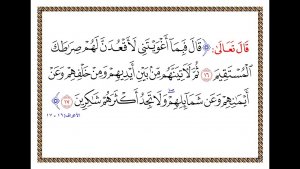 قَالَ تَعَالَىٰ: ﴿ قَالَ فَبِمَآ أَغۡوَيۡتَنِي لَأَقۡعُدَنَّ لَهُمۡ صِرَٰطَكَ
ٱلۡمُسۡتَقِيمَ ١٦ ثُمَّ لَأٓتِيَنَّهُم مِّنۢ بَيۡنِ أَيۡدِيهِمۡ وَمِنۡ خَلۡفِهِمۡ وَعَنۡ
أَيۡمَٰنِهِمۡ وَعَن شَمَآئِلِهِمۡۖ وَلَا تَجِدُ أَكۡثَرَهُمۡ شَٰكِرِينَ ١٧ ﴾
الأعراف: ١٦ - ١٧